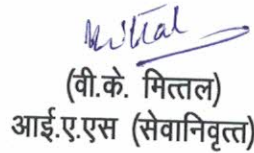 Mittal
(वी.के. मित्तल)
आई.ए.एस (सेवानिवृत्त)